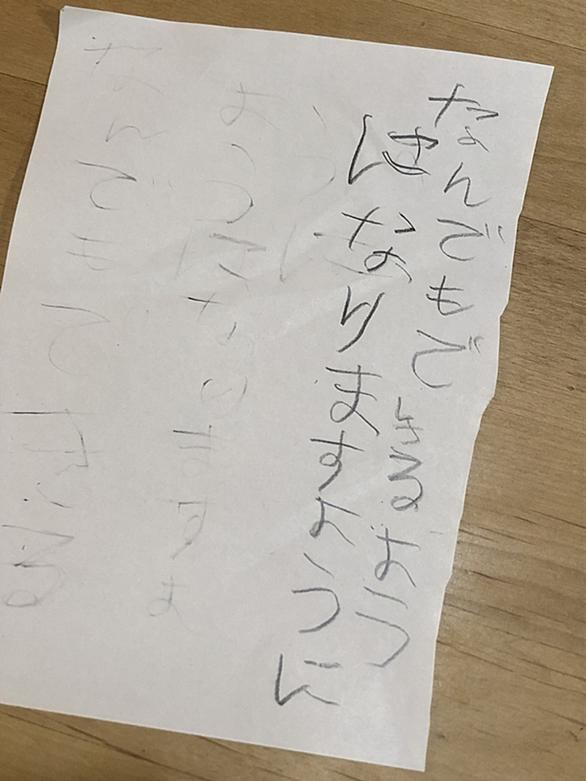 なんでもできるよう
はなりますように
なんでもできる
ようになりますよ
うに